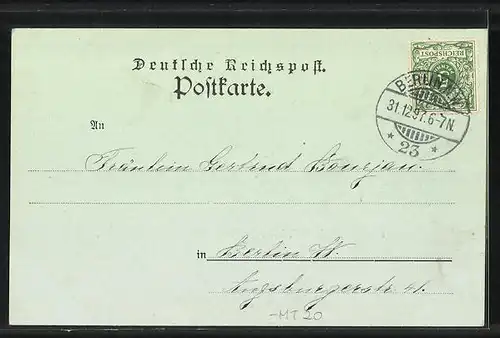 Deutsche Reichspost.
Postkarte.
REICHSPOST
BERLIN
31.12.97. 6-7N.
* 23 *
An
Fräulein Gertrud Bourjau.
in Berlin W.
Augsburgerstr.
-MT20